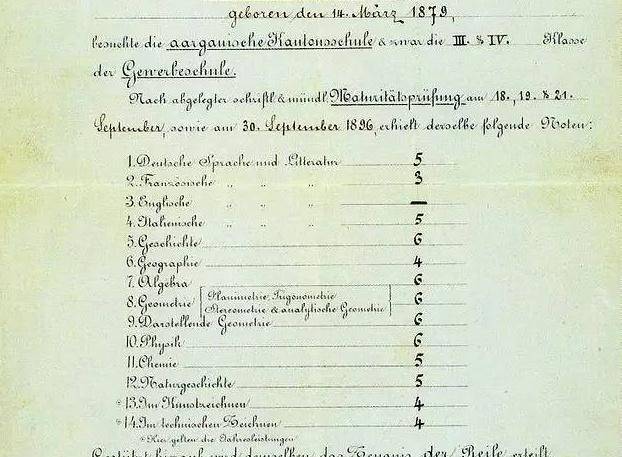 geboren den 14. März 1879,
besuchte die aargauische Kantonsschule & zwar die III. & IV. Klasse
der Gewerbeschule.
Nach abgelegter schriftl. & mündl. Maturitätsprüfung am 18., 19. & 21.
September, sowie am 30. September 1896, erhielt derselbe folgende Noten:
1. Deutsche Sprache und Litteratur 5
2. Französische „ „ „ 3
3. Englische „ „ „ —
4. Italienische „ „ „ 5
5. Geschichte 6
6. Geographie 4
7. Algebra 6
8. Geometrie [Planimetrie, Trigonometrie 6
Stereometrie & analytische Geometrie]
9. Darstellende Geometrie 6
10. Physik 6
11. Chemie 5
12. Naturgeschichte 5
*13. Im Kunstzeichnen 4
*14. Im technischen Zeichnen 4
*Hier gelten die Jahresleistungen
Gestützt hierauf wird demselben das Zeugnis der Reife erteilt